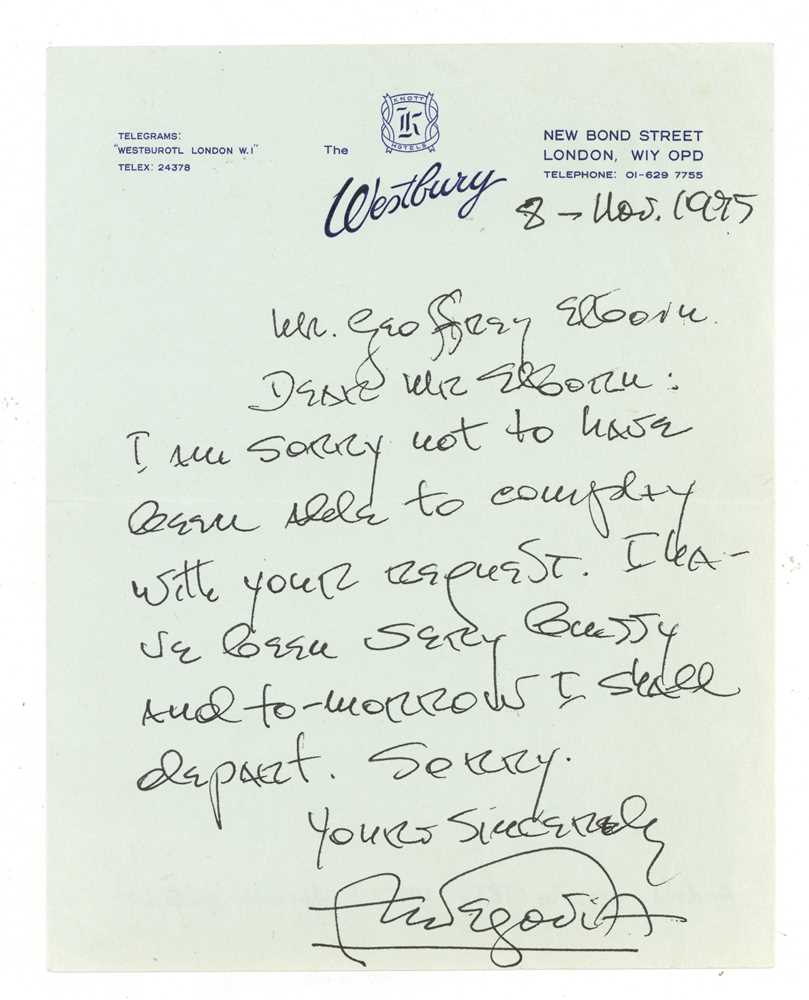 KNOTT
K
HOTELS
TELEGRAMS:
"WESTBUROTL LONDON W.1"
TELEX: 24378
The
Westbury
NEW BOND STREET
LONDON, W1Y 0PD
TELEPHONE: 01-629 7755
8 - Nov. 1975
Mr. Geoffrey Elborn.
Dear Mr Elborn:
I am sorry not to have
been able to comply
with your request. I ha-
ve been very bussy
and to-morrow I shall
depart. Sorry.
Yours Sincerely
Segovia